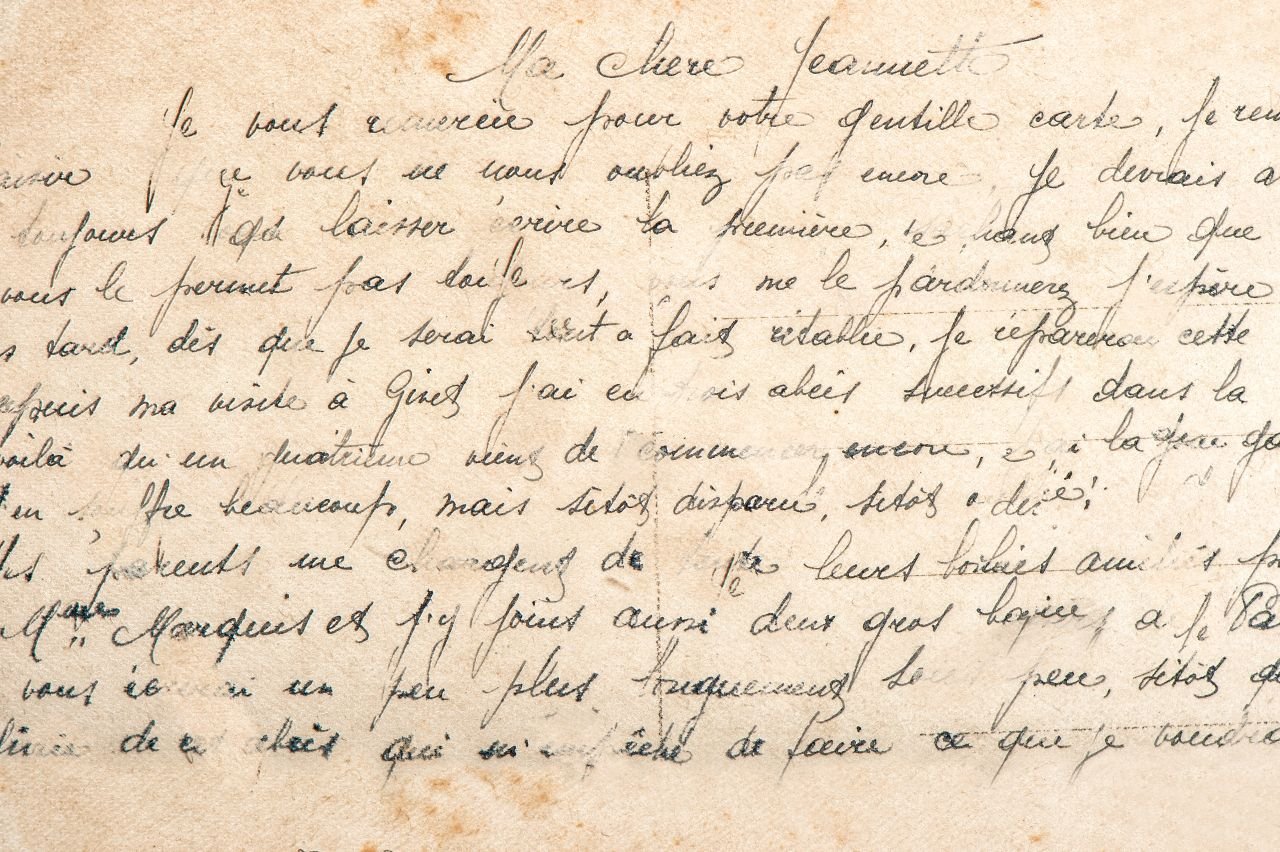 Ma chere Jeannette
Je vous remercie pour votre gentille carte, je
que vous ne nous oubliez pas encore, je devrais
toujours laisser écrire la première, bien que
vous le permet pas toujours, vous me le pardonnerez j'espère
tard, dès que je serai tout a fait rétablie, je réparerai cette
ma visite à Givet j'ai eu trois abcès successifs dans la
voilà qu'un quatrième vient de commencer encore, la
souffre beaucoup, mais sitôt disparu, sitôt
parents me chargent de toute leurs bonnes amitiés
Mme Marquis et j'y joins aussi deux gros a
vous écrirai un peu plus longuement sous peu, sitôt
de ces abcès qui m'empêche de faire ce que je